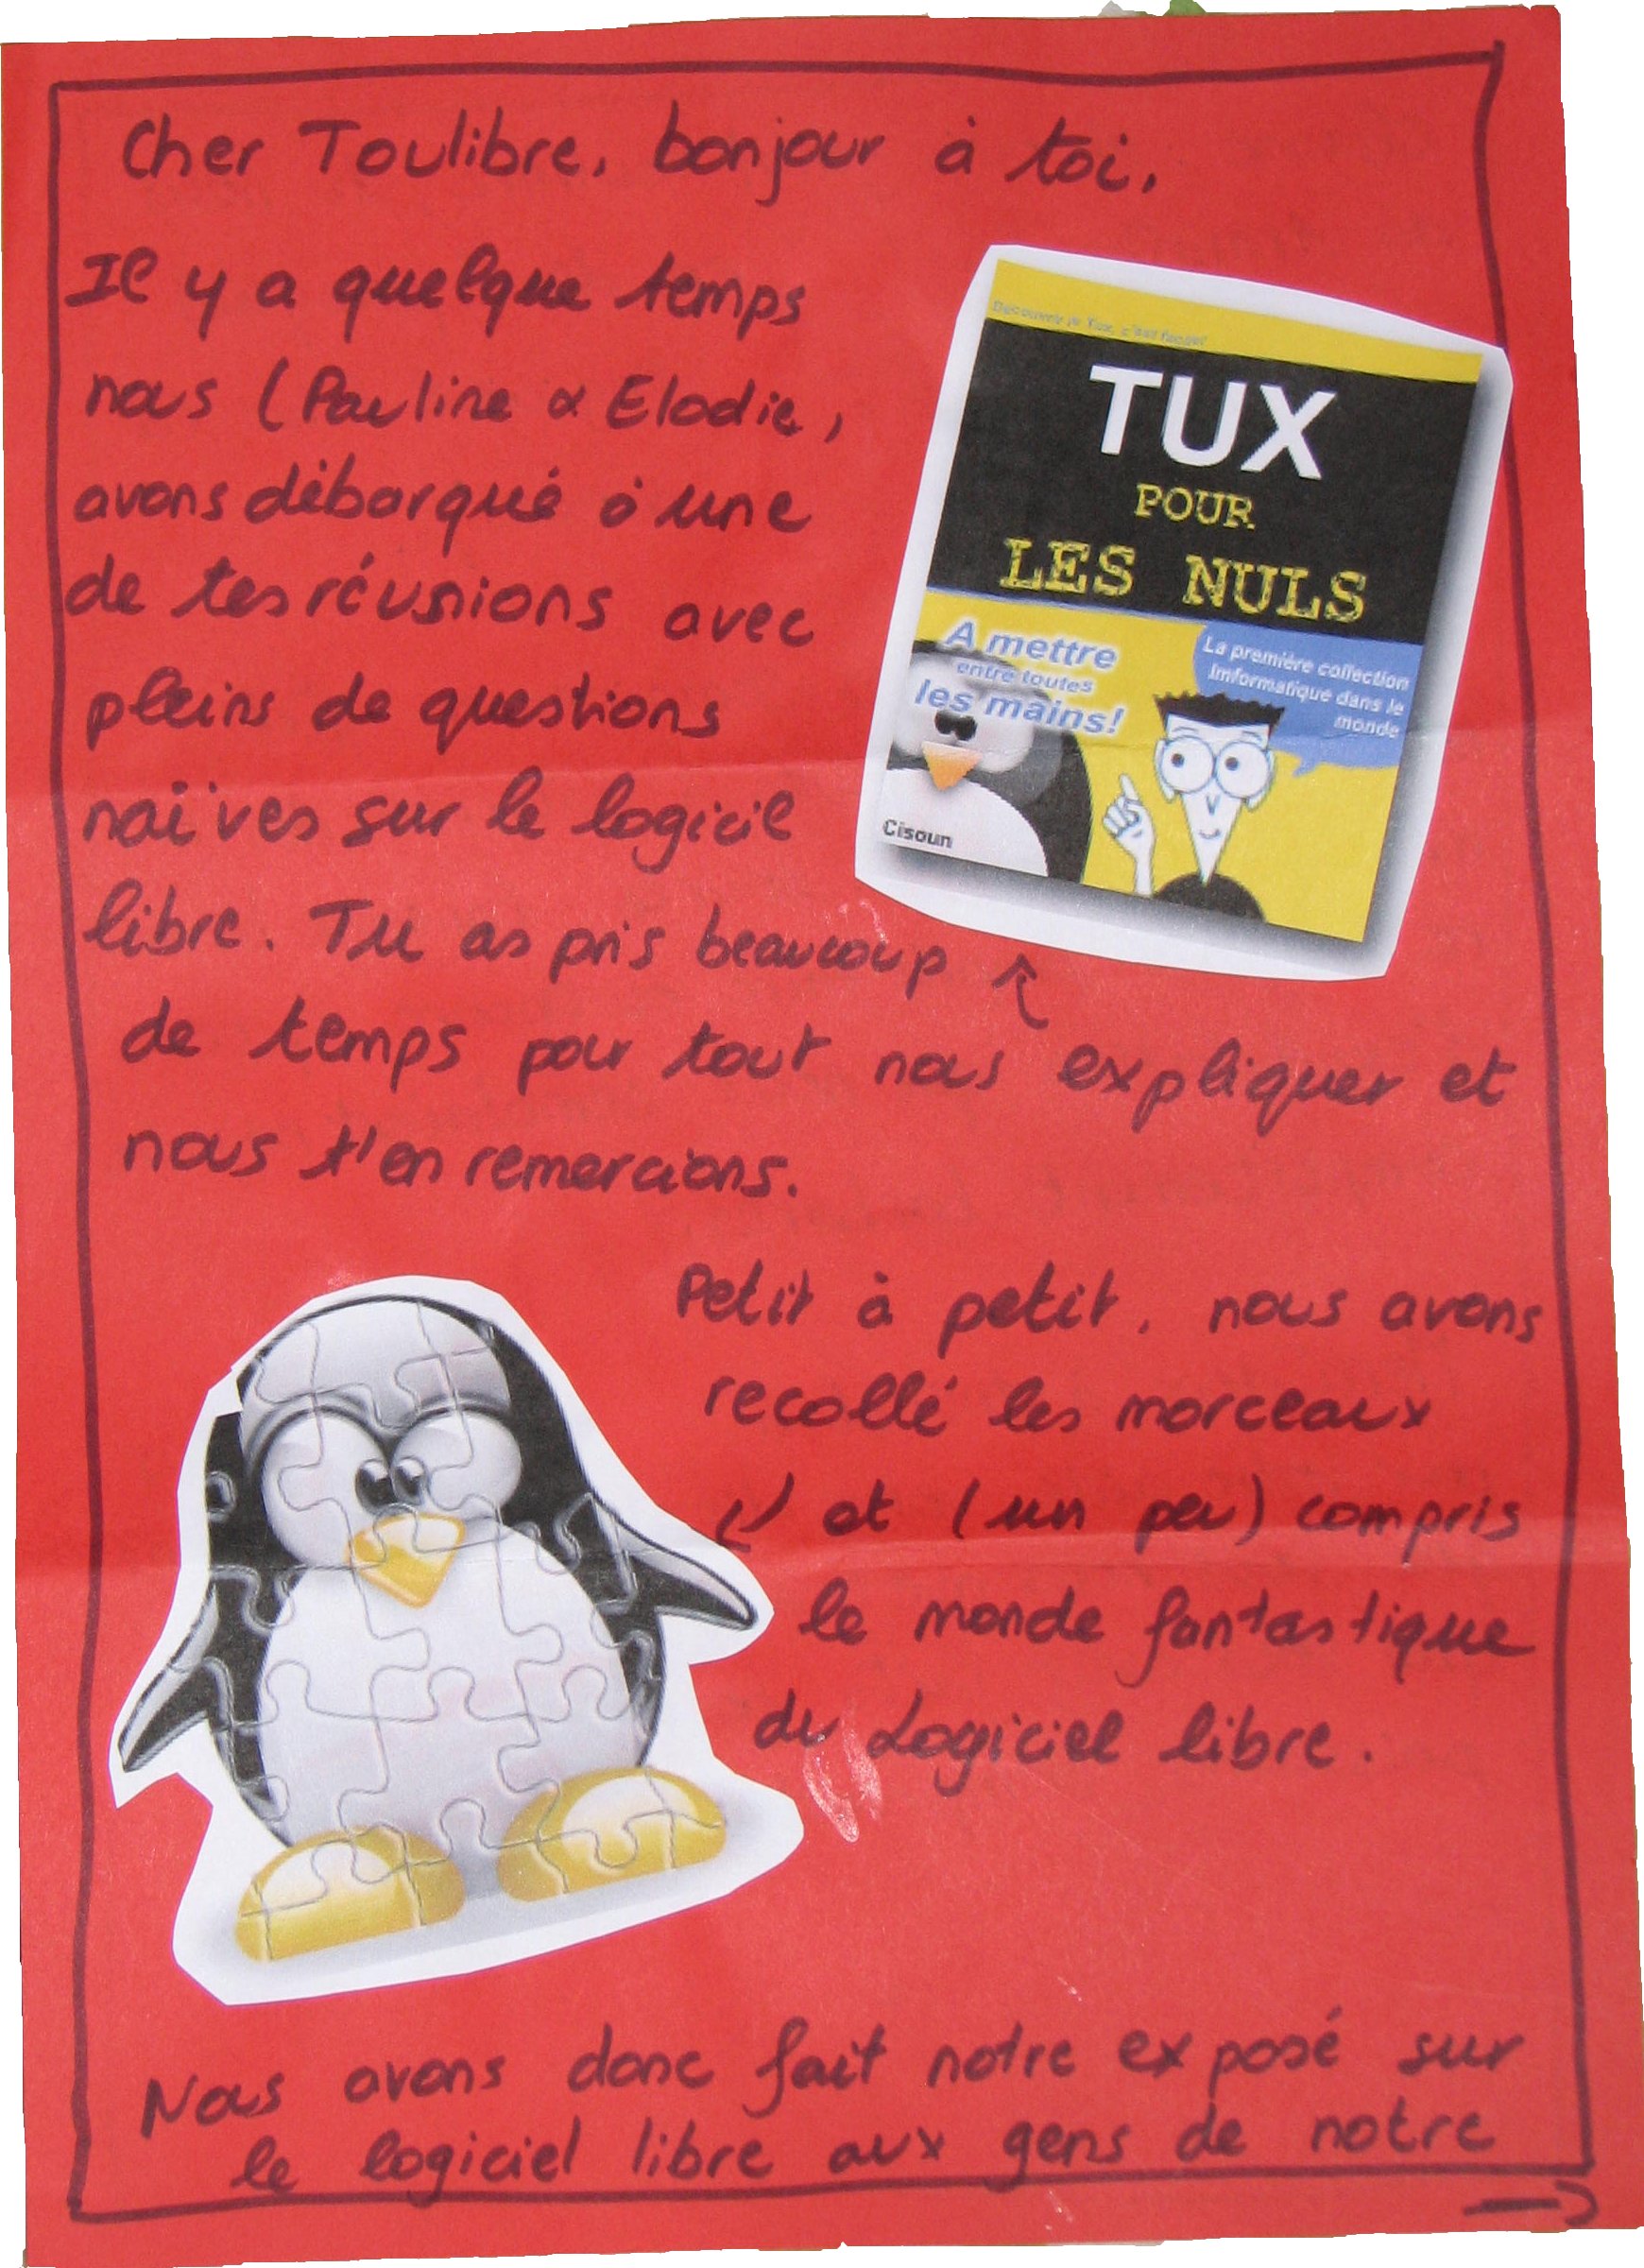 Cher Toulibre, bonjour à toi,
Il y a quelque temps
nous (Pauline & Elodie)
avons débarqué à une
de tes réunions avec
pleins de questions
naïves sur le logiciel
libre. Tu as pris beaucoup
de temps pour tout nous expliquer et
nous t'en remercions.
Découvrir le Tux, c'est facile!
TUX
POUR
LES NULS
A mettre
entre toutes
les mains!
La première collection
Imformatique dans le
monde
Cisoun
Petit à petit, nous avons
recollé les morceaux
et (un peu) compris
le monde fantastique
du Logiciel libre.
Nous avons donc fait notre exposé sur
le logiciel libre aux gens de notre